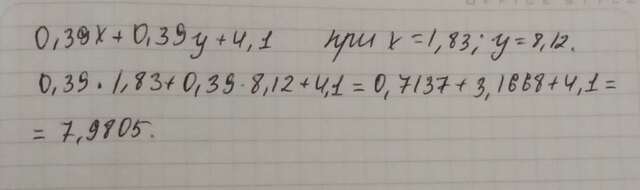 0,39x + 0,39y + 4,1 при x = 1,83; y = 8,12.
0,39 · 1,83 + 0,39 · 8,12 + 4,1 = 0,7137 + 3,1668 + 4,1 =
= 7,9805.